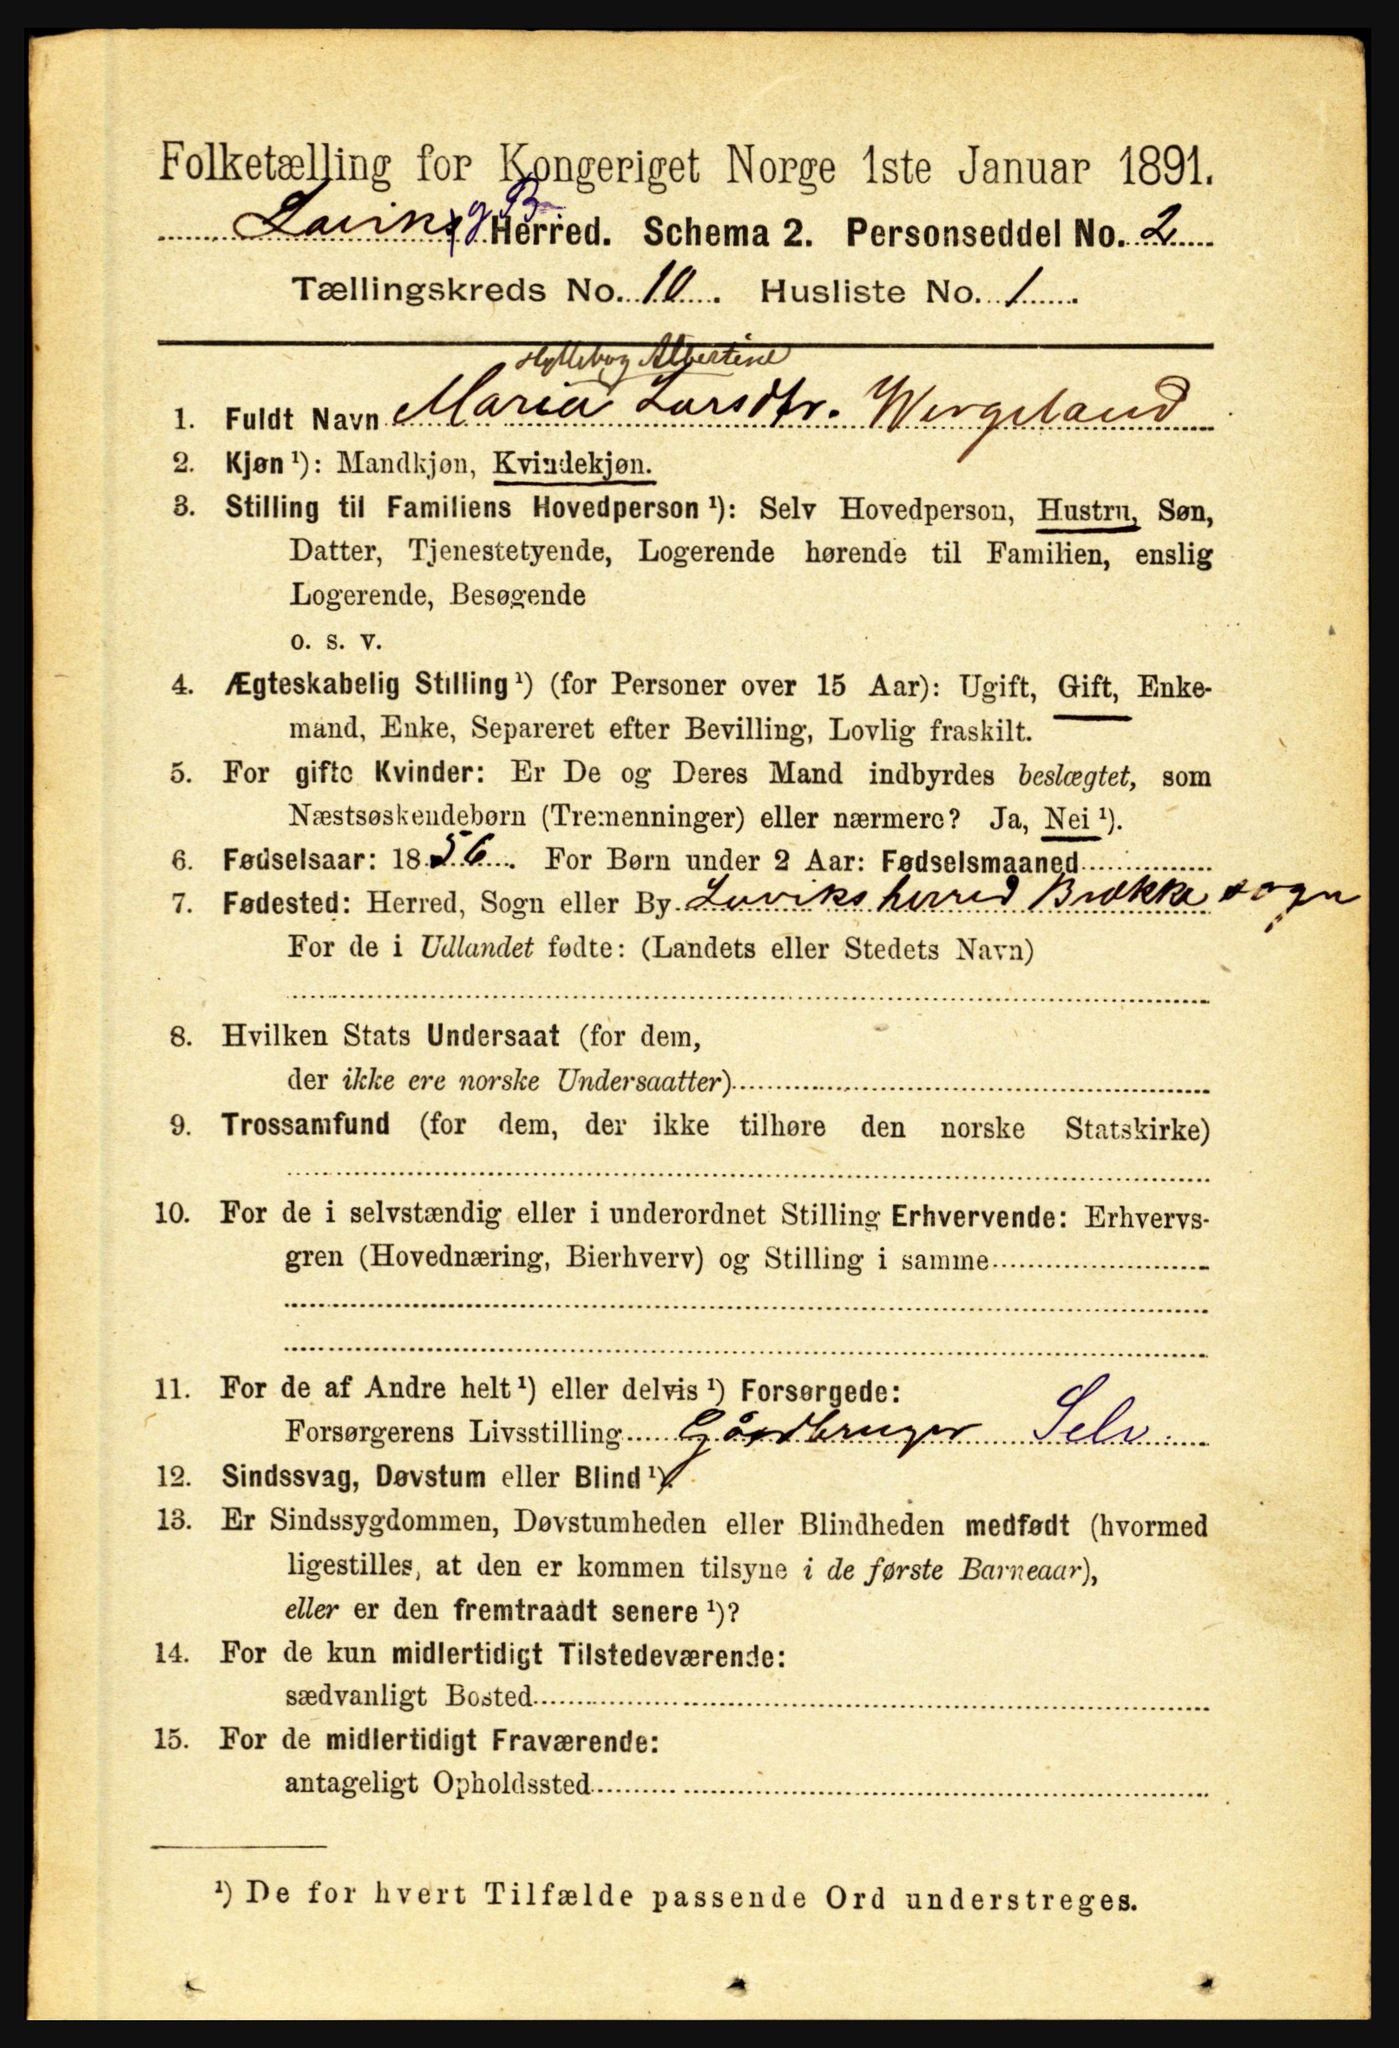 Folketælling for Kongeriget Norge 1ste Januar 1891.
Laviks g B. Herred. Schema 2. Personseddel No. 2
Tællingskreds No. 10. Husliste No. 1
Albertine
1. Fuldt Navn Maria Larsdtr. Wergeland
2. Kjøn ¹): Mandkjøn, Kvindekjøn.
3. Stilling til Familiens Hovedperson ¹): Selv Hovedperson, Hustru, Søn,
Datter, Tjenestetyende, Logerende hørende til Familien, enslig
Logerende, Besøgende
o. s. v.
4. Ægteskabelig Stilling ¹) (for Personer over 15 Aar): Ugift, Gift, Enke-
mand, Enke, Separeret efter Bevilling, Lovlig fraskilt.
5. For gifte Kvinder: Er De og Deres Mand indbyrdes beslægtet, som
Næstsøskendebørn (Tremenninger) eller nærmere? Ja, Nei ¹).
6. Fødselsaar: 1856. For Børn under 2 Aar: Fødselsmaaned
7. Fødested: Herred, Sogn eller By Laviks herred Brække sogn
For de i Udlandet fødte: (Landets eller Stedets Navn)
8. Hvilken Stats Undersaat (for dem,
der ikke ere norske Undersaatter)
9. Trossamfund (for dem, der ikke tilhøre den norske Statskirke)
10. For de i selvstændig eller i underordnet Stilling Erhvervende: Erhvervs-
gren (Hovednæring, Bierhverv) og Stilling i samme
11. For de af Andre helt ¹) eller delvis ¹) Forsørgede:
Forsørgerens Livsstilling Gårdbruger Selv.
12. Sindssvag, Døvstum eller Blind ¹).
13. Er Sindssygdommen, Døvstumheden eller Blindheden medfødt (hvormed
ligestilles, at den er kommen tilsyne i de første Barneaar),
eller er den fremtraadt senere ¹)?
14. For de kun midlertidigt Tilstedeværende:
sædvanligt Bosted
15. For de midlertidigt Fraværende:
antageligt Opholdssted
¹) De for hvert Tilfælde passende Ord understreges.